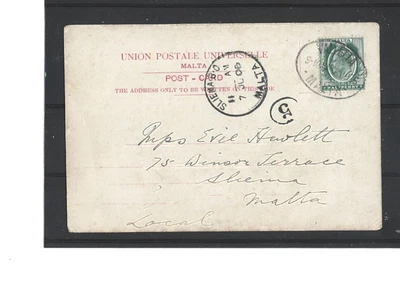 UNION POSTALE UNIVERSELLE
MALTA
POST-CARD
THE ADDRESS ONLY TO BE WRITTEN ON THIS SIDE
SLIEMA
11 AM
7 JU 06
MALTA
25
Miss Evie Hewlett
75 Winsor Terrace
Sliema
Malta
Local